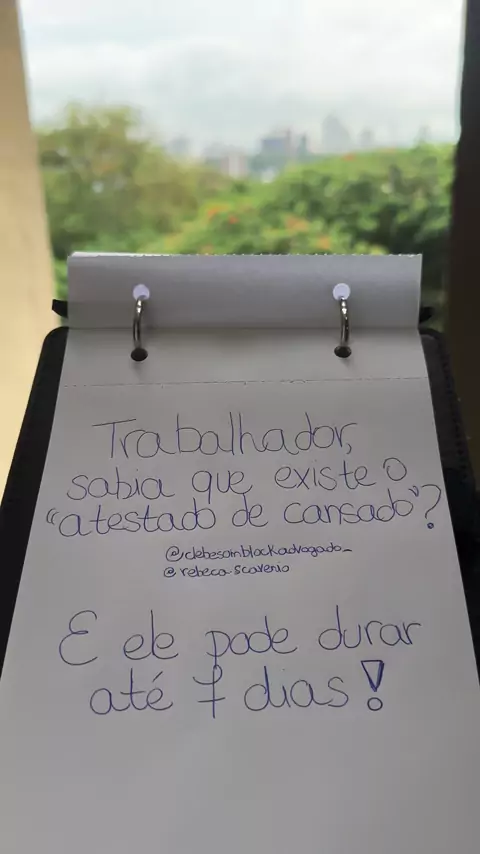 Trabalhador,
sabia que existe o
"atestado de cansado"?
@clebesomblockadvogado_
@rebeca.scavenio
E ele pode durar
até 7 dias!